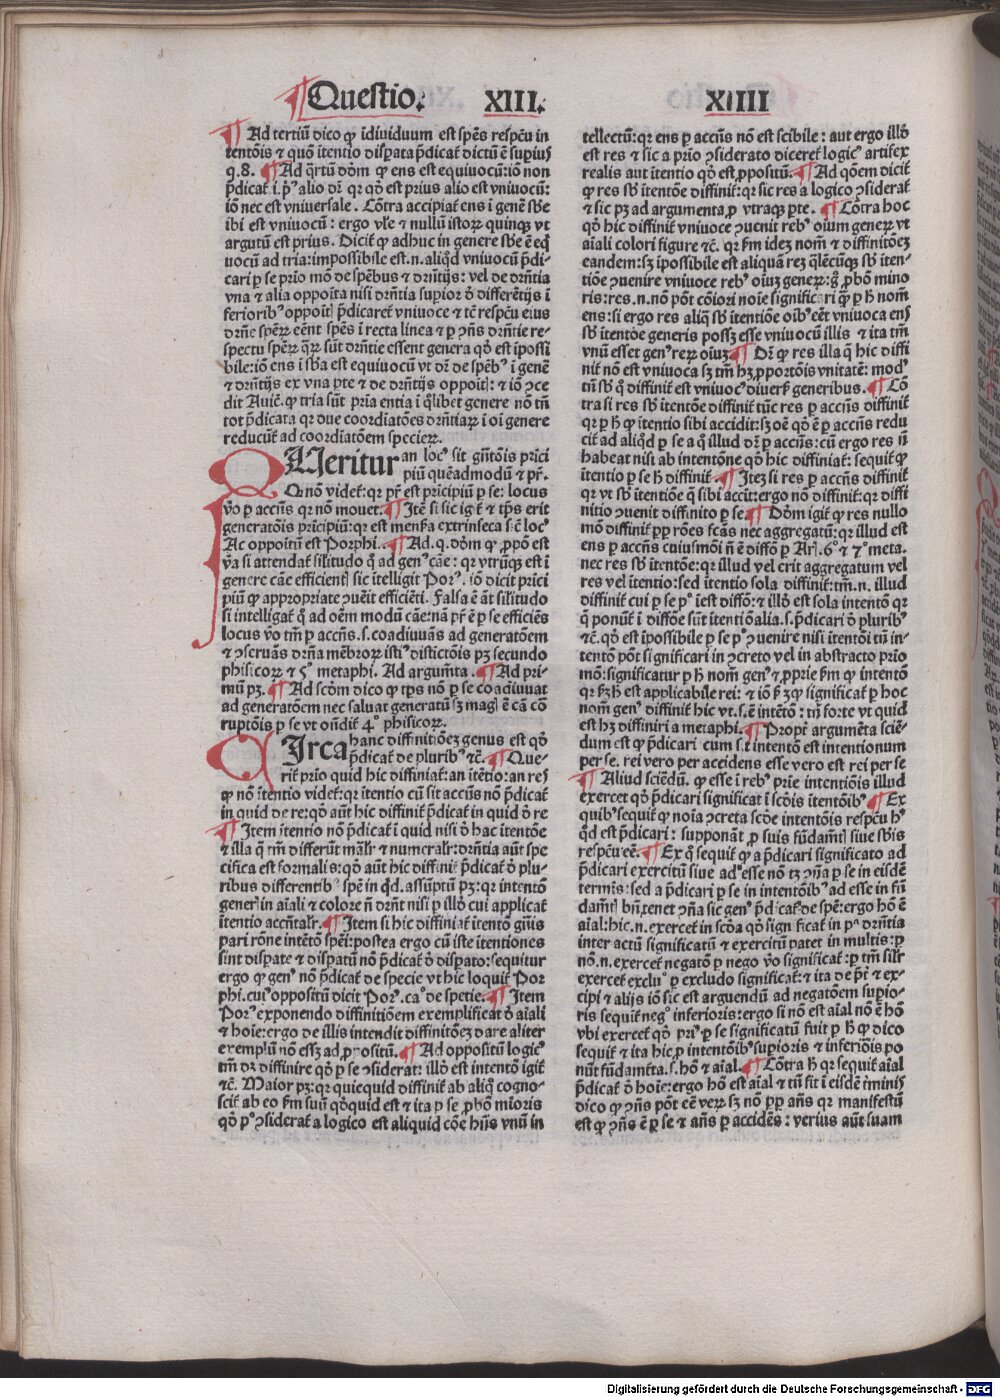 ¶ Questio. XIII. XIIII
¶ Ad tertiū dico ꝙ īdiuiduum est spēs respc̄u in
tentōis ⁊ quō itentio disꝑata p̄dicat̄ dictū ē supius
q.8. ¶ Ad q̄rtū dōm ꝙ ens est equiuocū: iō non
p̄dicat̄ i. pꝰ alio dr̄ qꝛ qō est prius alio est vniuocū:
iō nec est vniuersale. Cōtra accipiat̄ ens ī genē sb̄e
ibi est vniuocū: ergo vl̄e ⁊ nullū istoꝝ quinqꝫ vt
argutū est prius. Dicit̄ ꝙ adhuc in genere sb̄e ē eq̄
uocū ad tria: impossibile est.n. aliqd̄ vniuocū p̄di-
cari ꝑ se prio mō de spēbus ⁊ dr̄ntijs: vel de dr̄ntia
vna ⁊ alia oppoīta nisi dr̄ntia supior ō differētijs ī
feriorib' oppoīt̄ p̄dicaret̄ vniuoce ⁊ tē respc̄u eius
dr̄ne spēꝝ eēnt spēs ī recta linea ⁊ ꝑ ꝯn̄s dr̄ntie re-
spectu spēꝝ qꝝ sūt dr̄ntie essent genera qō est īpossi
bile: iō ens ī sb̄a est equiuocū vt dr̄ de spēb' ī genē
⁊ dr̄ntijs ex vna ꝑte ⁊ de dr̄ntijs oppoīt̄: ⁊ iō ꝯce
dit Auic̄. ꝙ tria sūt pria entia ī q̄libet genere nō tn̄
tot p̄dicata qꝛ due coordiatōes dr̄ntiaꝝ ī oī genere
reducūt̄ ad coordiatōem specieꝝ.
QUeritur an locꝰ sit gn̄tōis prīci
piū quēadmodū ⁊ pr̄.
Q nō videt̄: qꝛ pr̄ est prīcipiū ꝑ se: locus
ꝟo ꝑ accn̄s qꝛ nō mouet. ¶ Itē si sic igit̄ ⁊ tp̄s erit
generatōis prīcipiū: qꝛ est mensura extrinseca s.c̄ locꝰ
Ac oppoītū est Porphi. ¶ Ad.q. dōm ꝙ ꝓpō est
ꝟa si attendat̄ silitudo q̄ ad genꝰ cāe: qꝛ vtrūqꝫ est ī
genere cāe efficient̄ sic ītelligit Porꝰ. iō dicit prīci
piū ꝙ appropriate ꝯuēit efficiēti. Falsa ē āt silitudo
si intelligat̄ q̄ ad oēm modū cāe: nā pr̄ ē ꝑ se efficiēs
locus ꝟo tm̄ ꝑ accn̄s.s. coadiuuās ad generatōem
⁊ ꝯseruās dr̄na mēbroꝝ istiꝰ distictōis pꝫ secundo
phisicoꝝ ⁊ 5ꝰ metaphi. Ad argum̄ta. ¶ Ad pri-
mū pꝫ. ¶ Ad scōm dico ꝙ tp̄s nō ꝑ se coadiuuat
ad generatōem nec saluat generatū sꝫ maḡ ē cā cō
ruptōis ꝑ se vt on̄dit̄ 4ꝰ phisicoꝝ.
CIrca hanc diffinitiōeꝫ genus est qō
p̄dicat̄ de plurib' ⁊c̄. ¶ Que-
rit̄ prio quid hic diffiniat̄: an itētio: an res
ꝙ nō itentio videt̄: qꝛ itentio cū sit accn̄s nō p̄dicat̄
in quid de re: qō aūt hic diffinit̄ p̄dicat̄ in quid ō re
¶ Item itentio nō p̄dicat̄ ī quid nisi ō hac itentōe
⁊ illa q̄ tm̄ differūt mal̄r ⁊ numeral̄r: dr̄ntia aūt spe
cifica est formalis: qō aūt hic diffinit̄ p̄dicat̄ ō plu-
ribus differentib' spē in qd̄. assūptū pꝫ: qꝛ intentō
gener̄ in aīali ⁊ colore n̄ dr̄nt nisi ꝑ illō cui applicat̄
itentio accn̄tal̄r. ¶ Item si hic diffiniat̄ itentō gn̄is
pari rōne intētō spēi: postea ergo cū iste itentiones
sint disꝑate ⁊ disꝑatū nō p̄dicat̄ ō disꝑato: sequitur
ergo ꝙ genꝰ nō p̄dicat̄ de specie vt hic loquit̄ Por
phi. cuiꝰ oppositū dicit Porꝰ. caꝰ de spetie. ¶ Item
Porꝰ exponendo diffinitiōem exemplificat ō aīali
⁊ hoīe: ergo de illis intendit diffinitōeꝫ dare aliter
exemplū nō essꝫ ad ꝓpositū. ¶ Ad oppositū logicꝰ
tm̄ dꝫ diffinire qō ꝑ se ꝯsiderat: illō est intentō igit̄
⁊c̄. Maior pꝫ: qꝛ quicquid diffinit̄ ab aliq̄ cogno-
scit̄ ab eo fm̄ suū qōquid est ⁊ ita ꝑ se ꝓbō mīoris
qō pꝰ ꝯsiderat̄ a logico est aliquid cōe hijs vnū in
tellectū: qꝛ ens ꝑ accn̄s nō est scibile: aut ergo illō
est res ⁊ sic a prio ꝯsiderato diceret̄ logicꝰ artifex
realis aut itentio qō est ꝓpositū. ¶ Ad qōem dicit̄
ꝙ res sb̄ itentōe diffinit̄: qꝛ sic res a logico ꝯsiderat̄
⁊ sic pꝫ ad argumenta ꝓ vtraqꝫ ꝑte. ¶ Cōtra hoc
qō hic diffinit̄ vniuoce ꝯuenit reb' oīum geneꝝ vt
aīali colori figure ⁊c̄. qꝛ fm̄ ideꝫ nom̄ ⁊ diffinitōeꝫ
eandem: sꝫ ipossibile est aliquā reꝫ qlēcūqꝫ sb̄ iten-
tiōe ꝯuenire vniuoce reb' oīuꝫ geneꝝ: g̊ ꝓbō mino
ris: res.n. nō pōt cōiori noīe significari q̄ꝫ ꝑ h̄ nom̄
ens: si ergo res aliq̄ sb̄ itentiōe oīb' eēt vniuoca ens
sb̄ itentōe generis possꝫ esse vniuocū illis ⁊ ita tm̄
vnū esset genꝰ reꝝ oīuꝫ. ¶ Dr̄ ꝙ res illa q̄ hic diffi
nit̄ nō est vniuoca sꝫ tm̄ hꝫ ꝓportōis vnitatē: modꝰ
tn̄ sb̄ q̄ diffinit̄ est vniuocꝰ diuers̄ generibus. ¶ Cō
tra si res sb̄ itentōe diffinit̄ tūc res ꝑ accn̄s diffinit̄
qꝛ ꝑ h̄ ꝙ itentio sibi accidit: sꝫ oē qō ē ꝑ accn̄s redu
cit̄ ad aliqd̄ ꝑ se a q̄ illud dr̄ ꝑ accn̄s: cū ergo res n̄
habeat nisi ab intentōne qō hic diffiniat̄: sequit̄ ꝙ
itentio ꝑ se h̄ diffinit̄. ¶ Iteꝫ si res ꝑ accn̄s diffinit̄
qꝛ vt sb̄ itentiōe q̄ sibi accīt: ergo nō diffinit̄: qꝛ diffi
nitio ꝯuenit diffinito ꝑ se. ¶ Dōm igit̄ ꝙ res nullo
mō diffinit̄ ꝓp rōes fc̄as nec aggregatū: qꝛ illud est
ens ꝑ accn̄s cuiusmōi n̄ ē diffō ꝑ Ar̄. 6ꝰ ⁊ 7ꝰ meta.
nec res sb̄ itentōe: qꝛ illud vel erit aggregatum vel
res vel itentio: sed itentio sola diffinit̄: tm̄.n. illud
diffinit̄ cui ꝑ se pꝰ iest diffō: ⁊ illō est sola intentō qꝛ
q̄ ponūt̄ ī diffōe sūt itentiōalia.s. p̄dicari ō plurib'
⁊c̄. qō est ipossibile ꝑ se pꝰ ꝯuenire nisi itentōi tū in-
tentō pōt significari in ꝯcreto vel in abstracto prio
mō: significatur ꝑ h̄ nom̄ genꝰ ⁊ ꝓprie fm̄ ꝙ intentō
qꝛ fꝫ h̄ est applicabile rei: ⁊ iō fꝫ ꝙ significat̄ ꝑ hoc
nom̄ genꝰ diffinit̄ hic vt.s.ē intētō: tn̄ forte vt quid
est hꝫ diffiniri a metaphi. ¶ Propt̄ argumēta sciē-
dum est ꝙ p̄dicari cum s.t intentō est intentionum
per se. rei vero per accidens esse vero est rei per se
¶ Aliud sciēdū. ꝙ esse ī reb' prie intentiōis illud
exercet qō p̄dicari significat ī scōis itentōib'. ¶ Ex
quib' sequit̄ ꝙ noīa ꝯcreta scōe intentōis respc̄u hꝰ
qd̄ est p̄dicari: supponāt ꝓ suis fūdam̄t̄ siue sb̄is
respc̄u eē. ¶ Ex q̄ sequit̄ ꝙ a p̄dicari significato ad
p̄dicari exercitū siue ad esse nō tꝫ ꝯn̄a ꝑ se in eisdē
termīs: sed a p̄dicari ꝑ se in intentōib' ad esse in fū
dam̄t̄ bn̄. tenet ꝯn̄a sic genꝰ p̄dicat̄ de spē: ergo hō ē
aīal: hic.n. exercet̄ in scōa qō significat̄ in pᵃ dr̄ntia
inter actū significatū ⁊ exercitū patet in multis: ꝑ
nō.n. exercet̄ negatō ꝑ nego ꝟo significat̄: ꝑ tm̄ sil̄r
exercet̄ excluꝰ ꝑ excludo significat̄: ⁊ ita de p̄t̄ ⁊ ex-
cipi ⁊ alijs iō sic est arguendū ad negatōem supio-
ris sequit̄ negꝰ inferioris: ergo si nō est aīal nō ē hō
vbi exercet̄ qō priꝰ ꝑ se significatū fuit ꝑ h̄ ꝙ dico
sequit̄ ⁊ ita hic ꝓ intentōib' supioris ⁊ inferiōis po
nūt̄ fūdamēta.s. hō ⁊ aīal. ¶ Cōtra h̄ qꝛ sequit̄ aīal
p̄dicat̄ ō hoīe: ergo hō est aīal ⁊ tn̄ fit ī eisdē t̄minis
dico ꝙ ꝯn̄s pōt eē veꝝ sꝫ nō ꝓp an̄s qꝛ manifestū
est ꝙ ꝯn̄s ē ꝑ se ⁊ an̄s ꝑ accidēs: verius aūt suam
Digitalisierung gefördert durch die Deutsche Forschungsgemeinschaft - DFG